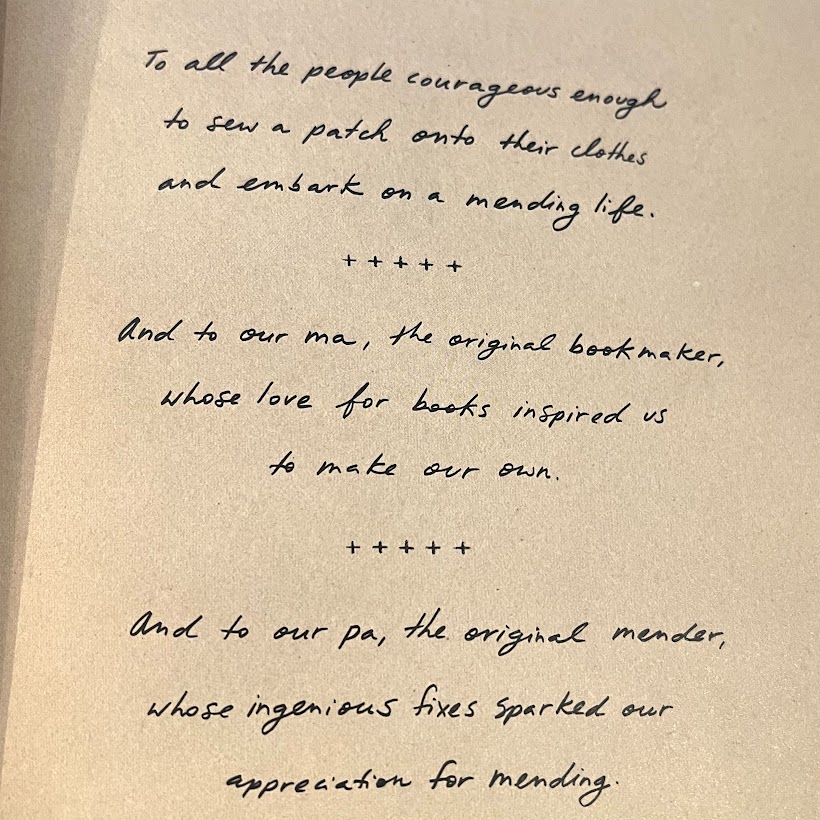 To all the people courageous enough
to sew a patch onto their clothes
and embark on a mending life.
+ + + + +
And to our ma, the original bookmaker,
whose love for books inspired us
to make our own.
+ + + + +
And to our pa, the original mender,
whose ingenious fixes sparked our
appreciation for mending.